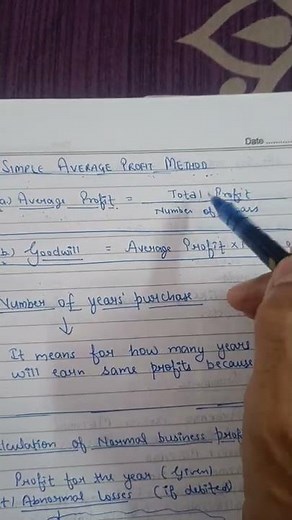 Date
SIMPLE AVERAGE PROFIT METHOD
a) Average Profit = Total Profit
Number of
b) Goodwill = Average Profit ×
Number of years' purchase
↓
It means for how many years
will earn same profits because
Calculation of Normal business prof
Profit for the year (Given)
(+) Abnormal Losses (if debited)